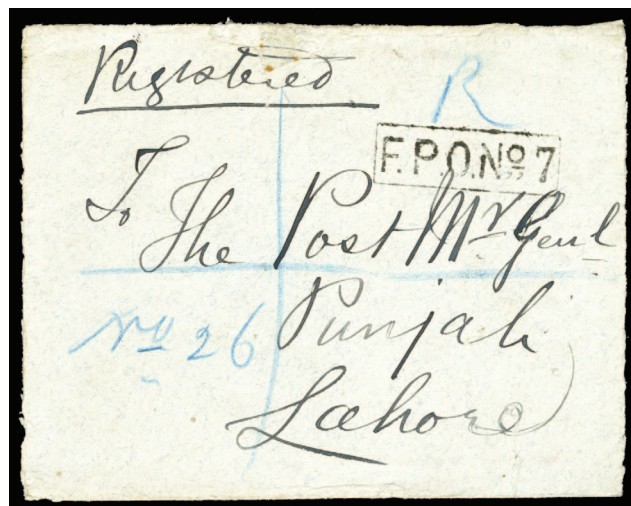 Registered
R
F.P.O.No 7
To
The Post Mr Genl
Punjab
No 26
Lahore